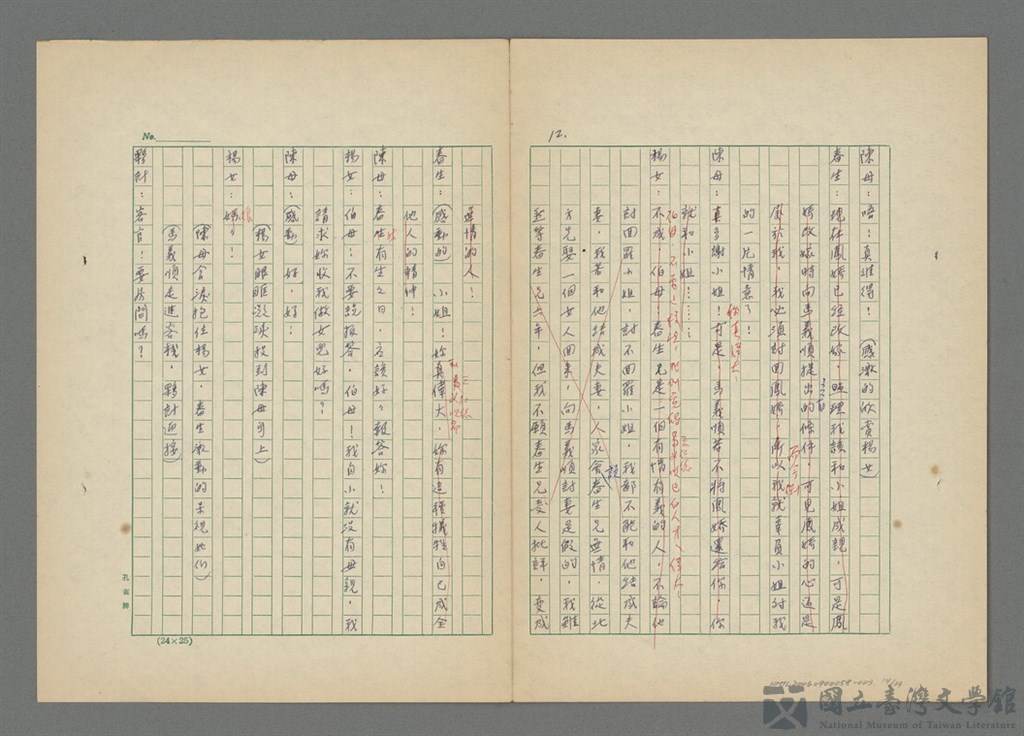 12.
陳母：唔！真難得！（感激的欣賞楊女）
春生：現在鳳嬌已經改嫁，照理我該和小姐成親，可是鳳
嬌改嫁時向馬義順提出的條件，可見鳳嬌的心還是
屬於我，我必須討回鳳嬌，所以我就辜負小姐對我
的一片情意了！
你真偉大！
陳母：真多謝小姐！可是，馬義順若不將鳳嬌還給你，你
就和小姐……
楊女：不成！伯母！春生兄是一個有情有義的人，不論他
討回羅小姐，討不回羅小姐，我都不能和他結成夫
妻，我若和他結成夫妻，人家會說春生兄無情，從北
方先娶一個女人回來，向馬義順討妻是假的，我雖
然等春生兄六年，但我不願春生兄受人批評，變成
無情的人！
春生：（感動的）小姐！妳真偉大，妳有這種犧牲自己成全
他人的精神！
陳母：春生有生之日，必須好好報答妳！
楊女：伯母！不要說報答，伯母！我自小就沒有母親，我
請求妳收我做女兒好嗎？
陳母：（感動）好，好！
（楊女眼眶淚珠投到陳母身上）
楊女：媽！
（陳母含淚抱住楊女，春生感動的呆視她們）
（馬義順走進客棧，夥計迎接）
夥計：客官！要房間嗎？
No.
(24×25)
國立臺灣文學館
National Museum of Taiwan Literature